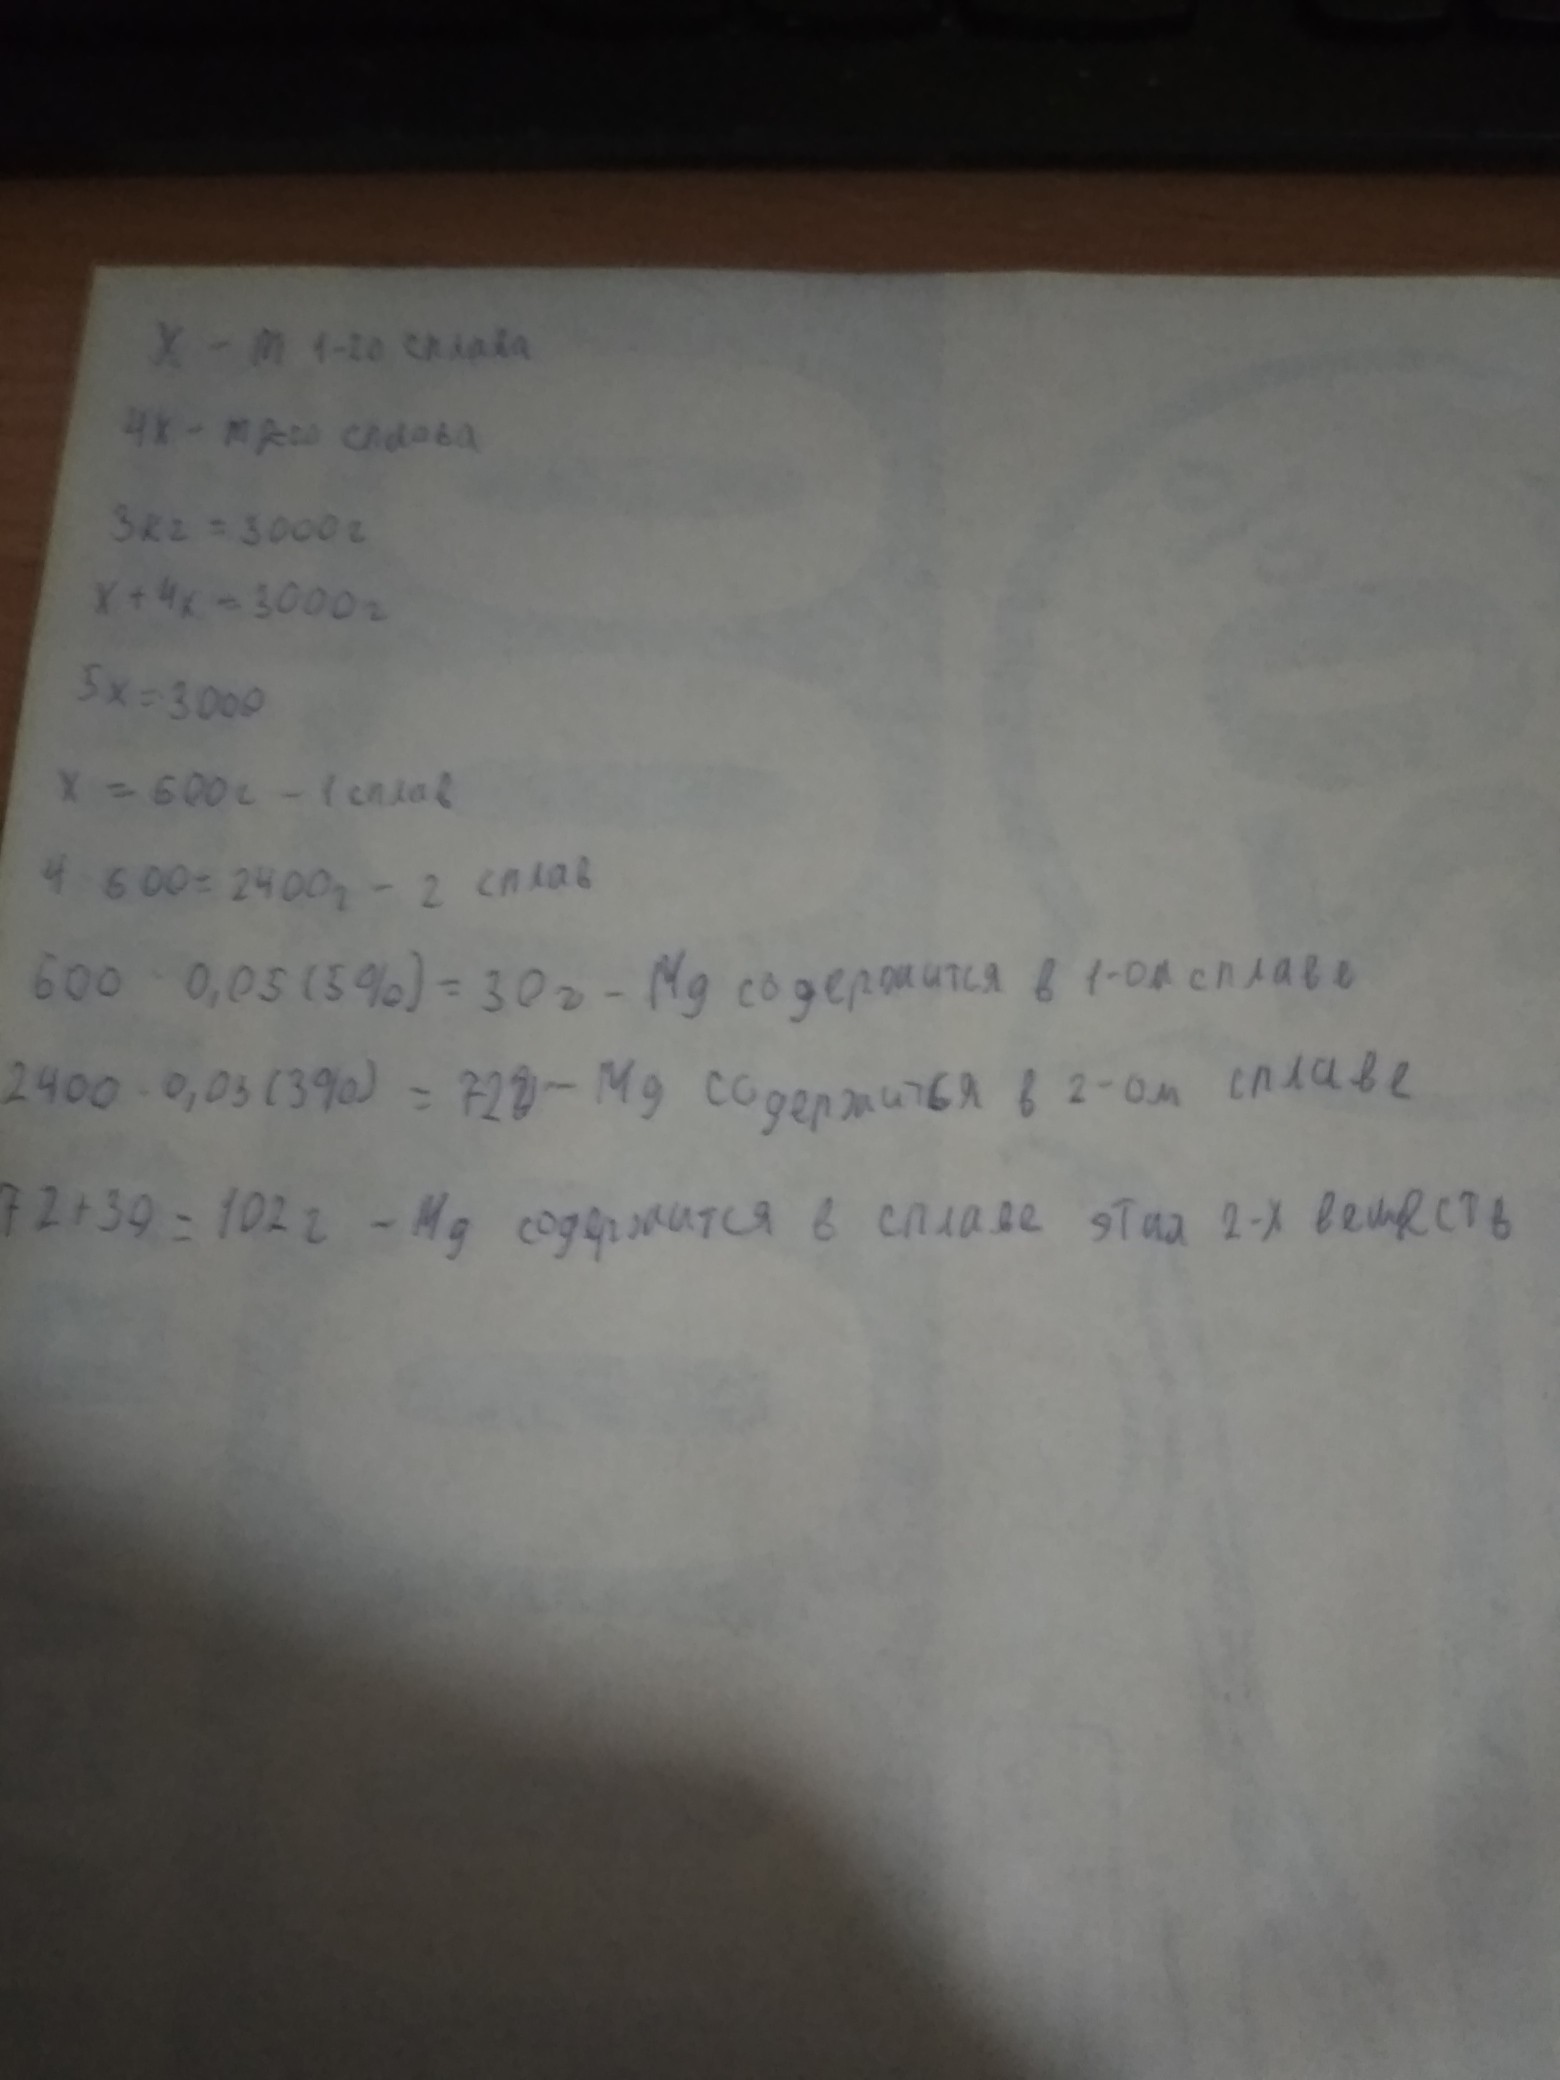 X - m 1-го сплава
4x - m 2-го сплава
3кг = 3000г
x + 4x = 3000г
5x = 3000
x = 600г - 1 сплав
4 600 = 2400г - 2 сплав
600 · 0,05 (5%) = 30г - Mg содержится в 1-ом сплаве
2400 · 0,03 (3%) = 72г - Mg содержится в 2-ом сплаве
72 + 30 = 102г - Mg содержится в сплаве этих 2-х веществ